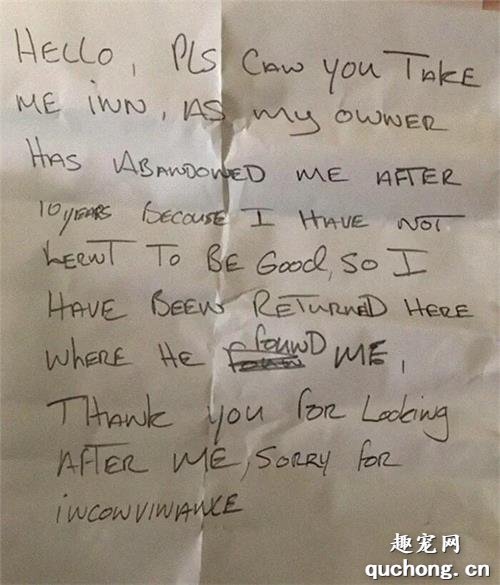 HELLO, PLS CAN YOU TAKE
ME INN, AS my OWNER
HAS ABANDONED ME AFTER
10 YEARS BECOUSE I HAVE NOT
LERNT TO BE GOOD, SO I
HAVE BEEN RETURNED HERE
WHERE HE found ME,
THANK you FOR Looking
AFTER ME, SORRY FOR
INCONVINANCE
趣宠网
quchong.cn